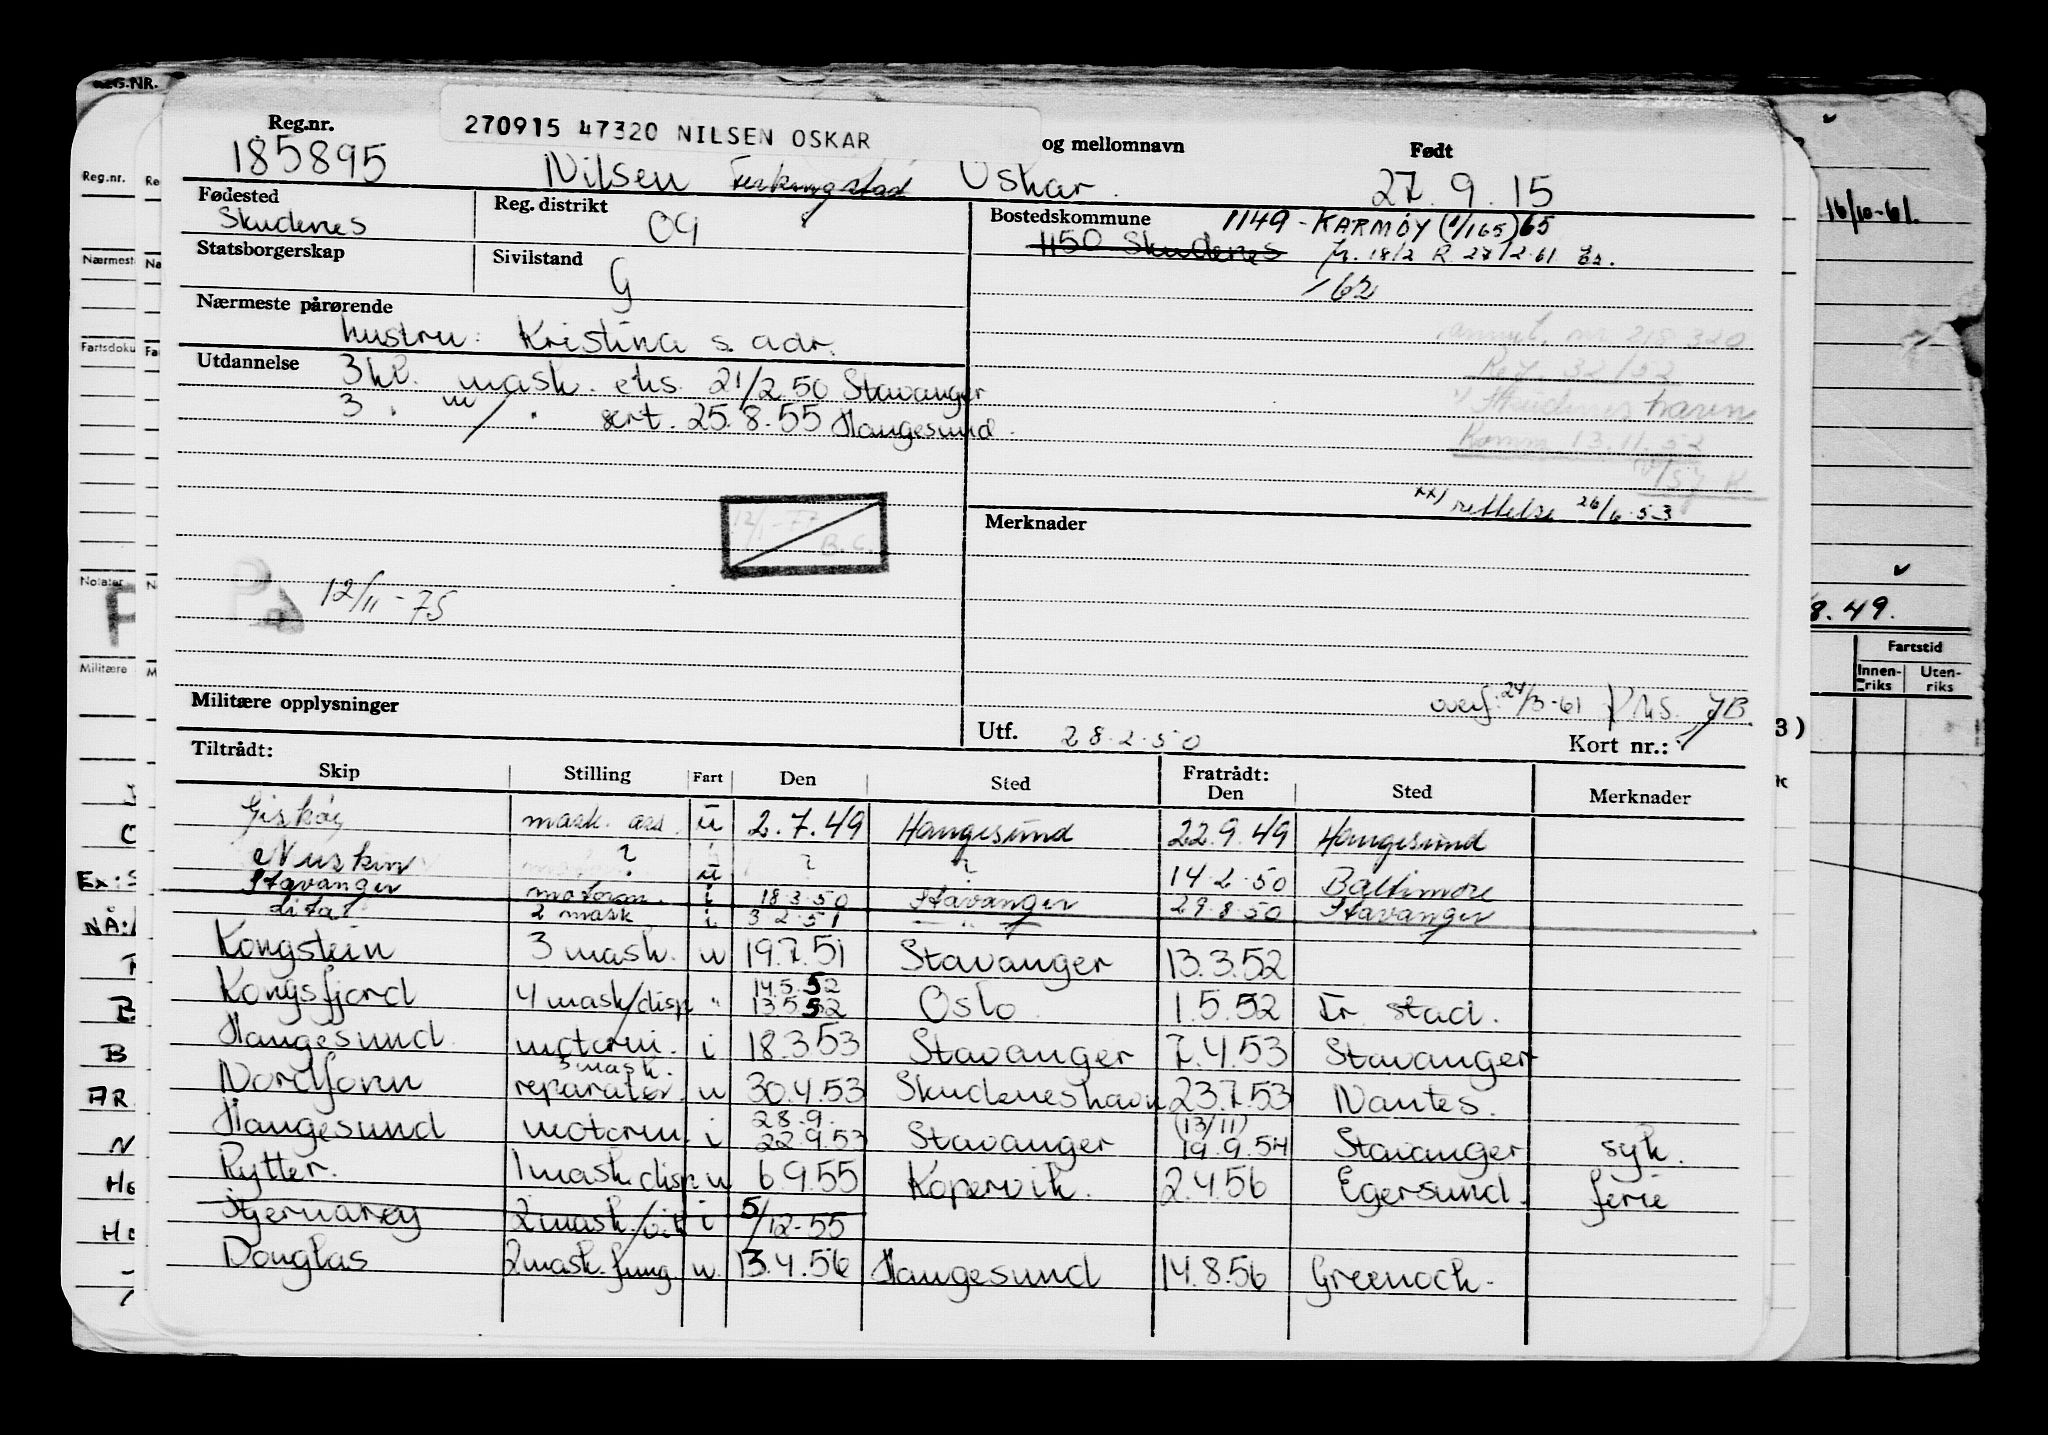 270915 47320 NILSEN OSKAR
Reg.nr. og mellomnavn Født
185895 Nilsen Ferkingstad Oskar. 27.9.15
Fødested Skudenes Reg. distrikt 09 Bostedskommune 1149 - KARMØY (1/165) 65
1150 Skudenes fr. 18/2 R 27/2-61
/62
Statsborgerskap Sivilstand G
Nærmeste pårørende
hustru: Kristina s. adr.
Utdannelse 3 kl. mask. eks. 21/2.50 Stavanger
3 " m/ " sert. 25.8.55 Haugesund.
Rej. 32/52
Skudeneshavn
Komm. 13.11.52
xx) rettelse 26/6-53
Merknader
12/1-77
B.C.
12/11-75
Militære opplysninger
overf. 24/3-61 JB
Utf. 28.2.50 Kort nr.: 1
Tiltrådt: Fratrådt:
Skip Stilling Fart Den Sted Den Sted Merknader
Giskøy mask. ass. u 2.7.49 Haugesund 22.9.49 Haugesund
Nuskin ? u ? ? 14.2.50 Baltimore
Stavanger motorm. i 18.3.50 Stavanger 29.8.50 Stavanger
2 mask i 3 2.51 — " —
Kongstein 3 mask. u 19.7.51 Stavanger 13.3.52
Kongsfjord 4 mask/disp " 14.5.52 13.5.52 Oslo. 1.5.52 Fr. stad.
Haugesund. motorm. i 18.3.53 Stavanger 7.4.53 Stavanger
Nordfonn 3 mask. reparatør. u 30.4.53 Skudeneshavn 23.7.53 Nantes.
Haugesund motorm. i 28.9. 22.9.53 Stavanger (13/11) 19.9.54 Stavanger syk.
Rytter. 1 mask. disp u 6.9.55 Kopervik. 2.4.56 Egersund. ferie
Stjernarøy 2 mask./vik i 5/12-55
Douglas 2 mask. fung. u. 13.4.56 Haugesund 14.8.56 Greenock.
REG.NR.
Reg.nr.
Nærmest
Fartsdoku
Notater
Militære
Ex:S
NÅ:
B
AR
N
16/10-61.
8.49.
Fartstid
Innenriks Utenriks
3)